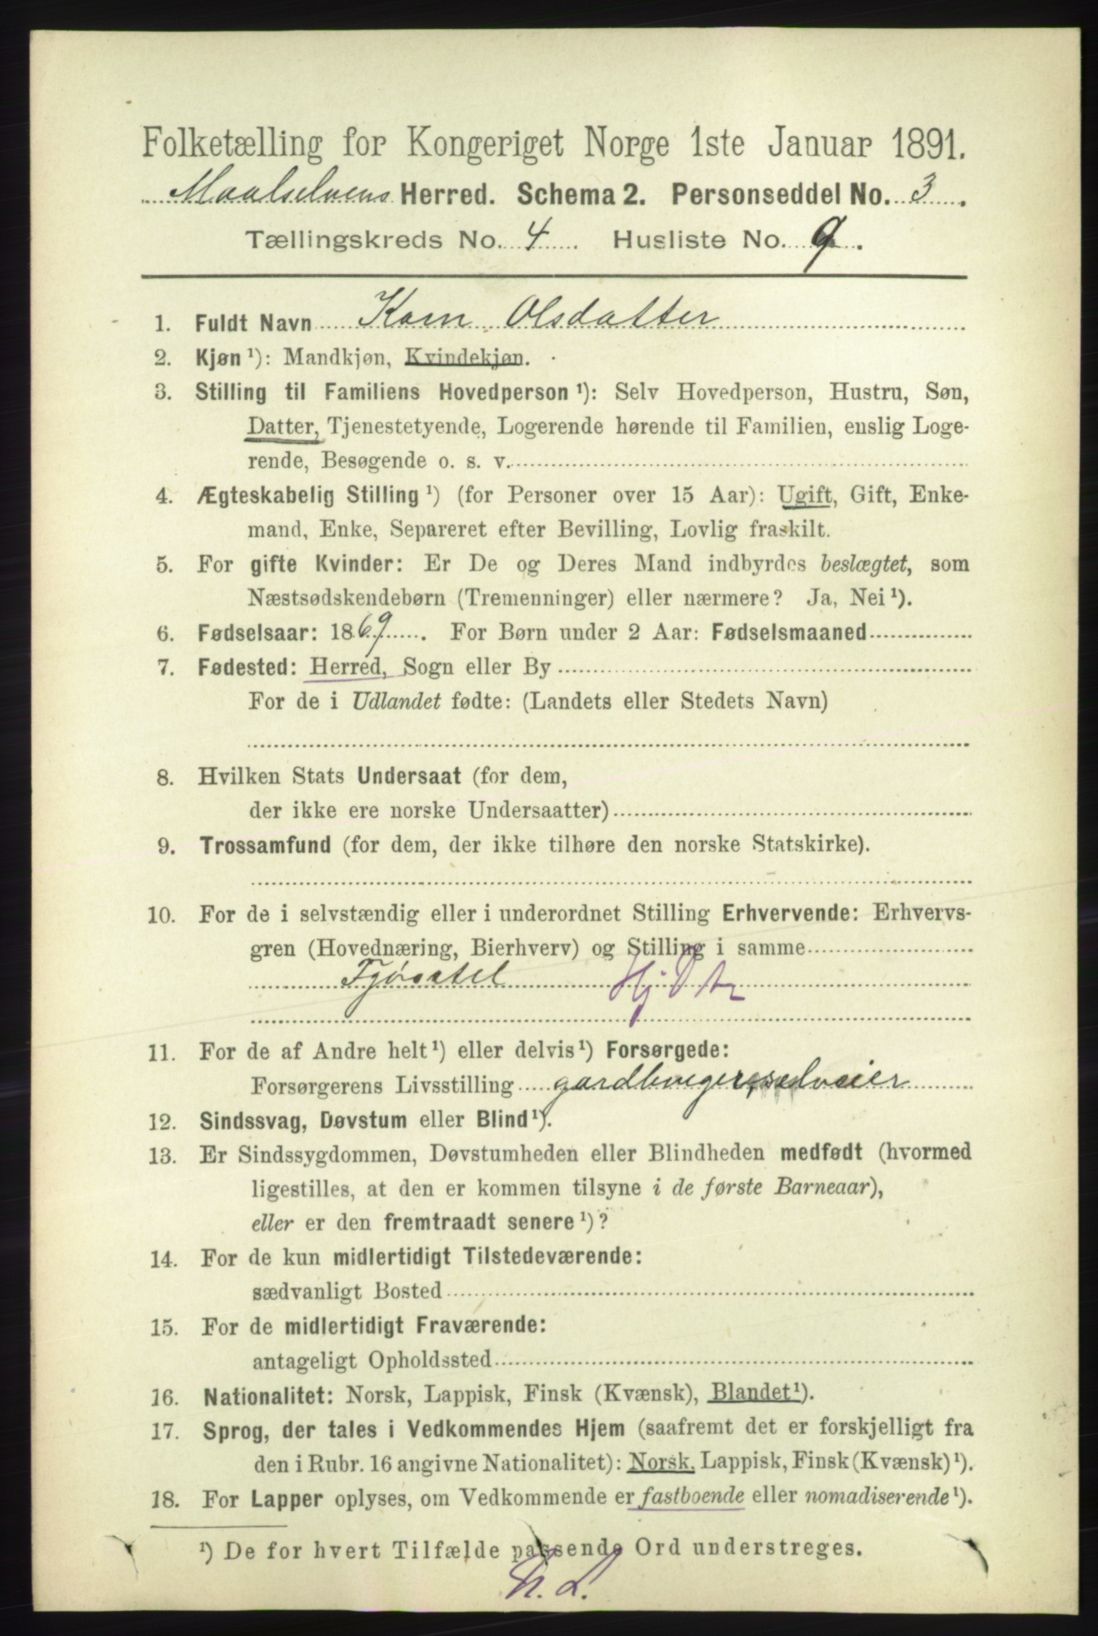 Folketælling for Kongeriget Norge 1ste Januar 1891.
Maalselvens Herred. Schema 2. Personseddel No. 3.
Tællingskreds No. 4. Husliste No. 9.
1. Fuldt Navn Karn Olsdatter
2. Kjøn ¹): Mandkjøn, Kvindekjøn.
3. Stilling til Familiens Hovedperson ¹): Selv Hovedperson, Hustru, Søn,
Datter, Tjenestetyende, Logerende hørende til Familien, enslig Loge-
rende, Besøgende o. s. v.
4. Ægteskabelig Stilling ¹) (for Personer over 15 Aar): Ugift, Gift, Enke-
mand, Enke, Separeret efter Bevilling, Lovlig fraskilt.
5. For gifte Kvinder: Er De og Deres Mand indbyrdes beslægtet, som
Næstsødskendebørn (Tremenninger) eller nærmere? Ja, Nei ¹).
6. Fødselsaar: 1869. For Børn under 2 Aar: Fødselsmaaned
7. Fødested: Herred, Sogn eller By
For de i Udlandet fødte: (Landets eller Stedets Navn)
8. Hvilken Stats Undersaat (for dem,
der ikke ere norske Undersaatter)
9. Trossamfund (for dem, der ikke tilhøre den norske Statskirke).
10. For de i selvstændig eller i underordnet Stilling Erhvervende: Erhvervs-
gren (Hovednæring, Bierhverv) og Stilling i samme
Fjøsstel
11. For de af Andre helt ¹) eller delvis ¹) Forsørgede:
Forsørgerens Livsstilling gardbruger, selveier
12. Sindssvag, Døvstum eller Blind ¹).
13. Er Sindssygdommen, Døvstumheden eller Blindheden medfødt (hvormed
ligestilles, at den er kommen tilsyne i de første Barneaar),
eller er den fremtraadt senere ¹)?
14. For de kun midlertidigt Tilstedeværende:
sædvanligt Bosted
15. For de midlertidigt Fraværende:
antageligt Opholdssted
16. Nationalitet: Norsk, Lappisk, Finsk (Kvænsk), Blandet ¹).
17. Sprog, der tales i Vedkommendes Hjem (saafremt det er forskjelligt fra
den i Rubr. 16 angivne Nationalitet): Norsk, Lappisk, Finsk (Kvænsk) ¹).
18. For Lapper oplyses, om Vedkommende er fastboende eller nomadiserende ¹).
¹) De for hvert Tilfælde passende Ord understreges.
N. L.